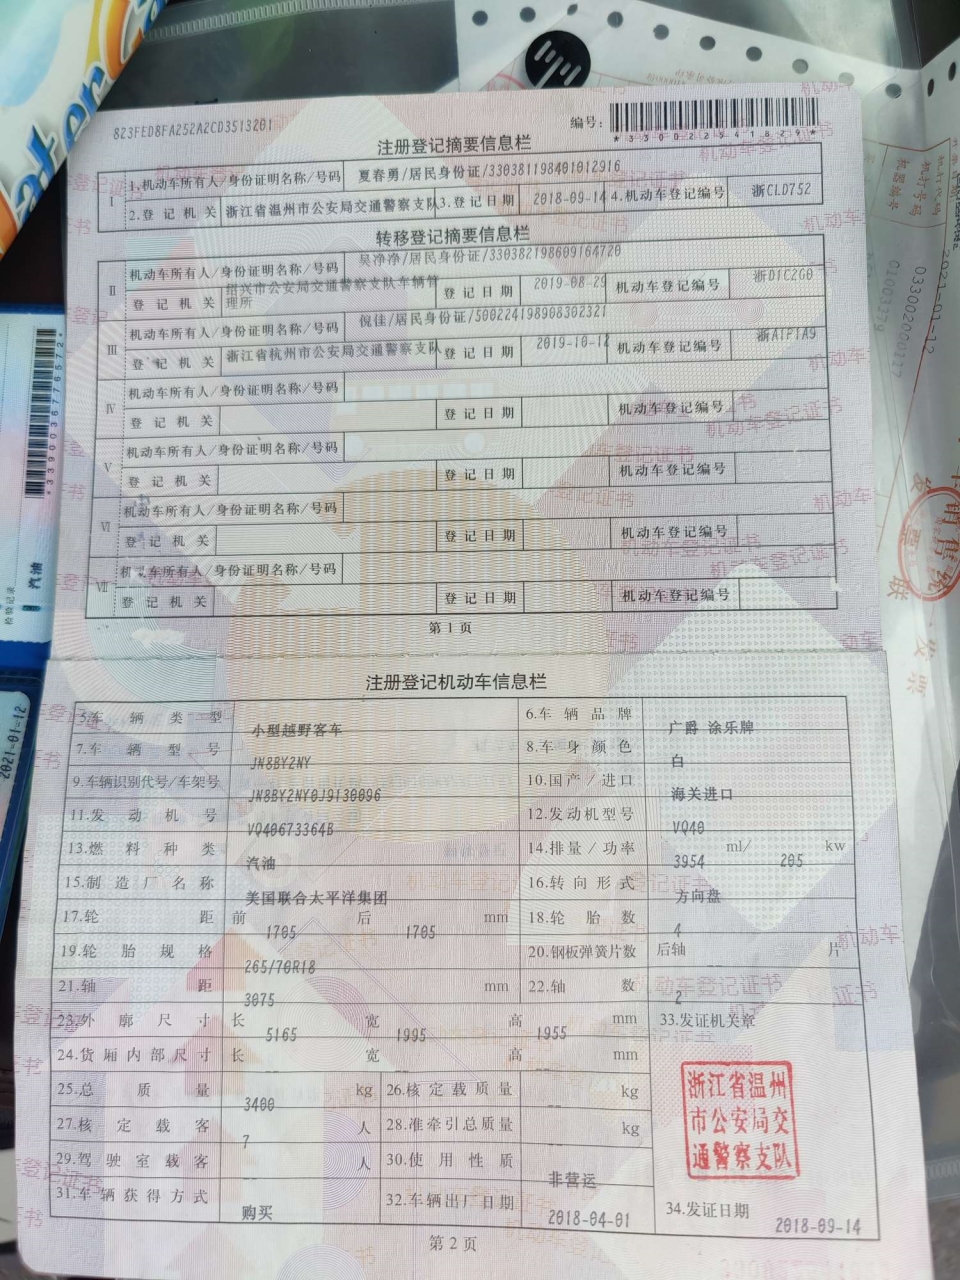 823FED8FA252A2CD3513201
编号:
*330022541829*
注册登记摘要信息栏
I
1.机动车所有人/身份证明名称/号码 夏春勇/居民身份证/330381198401012916
2.登记机关 浙江省温州市公安局交通警察支队 3.登记日期 2018-09-14 4.机动车登记编号 浙CLD752
转移登记摘要信息栏
II
机动车所有人/身份证明名称/号码 吴净净/居民身份证/330382198609164720
登记机关 绍兴市公安局交通警察支队车辆管理所 登记日期 2019-08-29 机动车登记编号 浙D1C2G0
III
机动车所有人/身份证明名称/号码 倪佳/居民身份证/500224198908302321
登记机关 浙江省杭州市公安局交通警察支队 登记日期 2019-10-12 机动车登记编号 浙A1P1A9
IV
机动车所有人/身份证明名称/号码
登记机关 登记日期 机动车登记编号
V
机动车所有人/身份证明名称/号码
登记机关 登记日期 机动车登记编号
VI
机动车所有人/身份证明名称/号码
登记机关 登记日期 机动车登记编号
VII
机动车所有人/身份证明名称/号码
登记机关 登记日期 机动车登记编号
第1页
注册登记机动车信息栏
5.车辆类型 小型越野客车 6.车辆品牌 广爵 涂乐牌
7.车辆型号 JN8BY2NY 8.车身颜色 白
9.车辆识别代号/车架号 JN8BY2NY0J9130096 10.国产/进口 海关进口
11.发动机号 VQ40673364B 12.发动机型号 VQ40
13.燃料种类 汽油 14.排量/功率 3954 ml/ 205 kw
15.制造厂名称 美国联合太平洋集团 16.转向形式 方向盘
17.轮距 前 1705 后 1705 mm 18.轮胎数 4
19.轮胎规格 265/70R18 20.钢板弹簧片数 后轴 -- 片
21.轴距 3075 mm 22.轴数 2
23.外廓尺寸 长 5165 宽 1995 高 1955 mm 33.发证机关章
24.货厢内部尺寸 长 -- 宽 -- 高 -- mm
25.总质量 3400 kg 26.核定载质量 -- kg
27.核定载客 7 人 28.准牵引总质量 -- kg
29.驾驶室载客 -- 人 30.使用性质 非营运
31.车辆获得方式 购买 32.车辆出厂日期 2018-04-01
浙江省温州
市公安局交
通警察支队
34.发证日期 2018-09-14
第2页
汽油
检验记录
*3390036776572*
2021-01-12
2021-01-12
033002000117
01003339